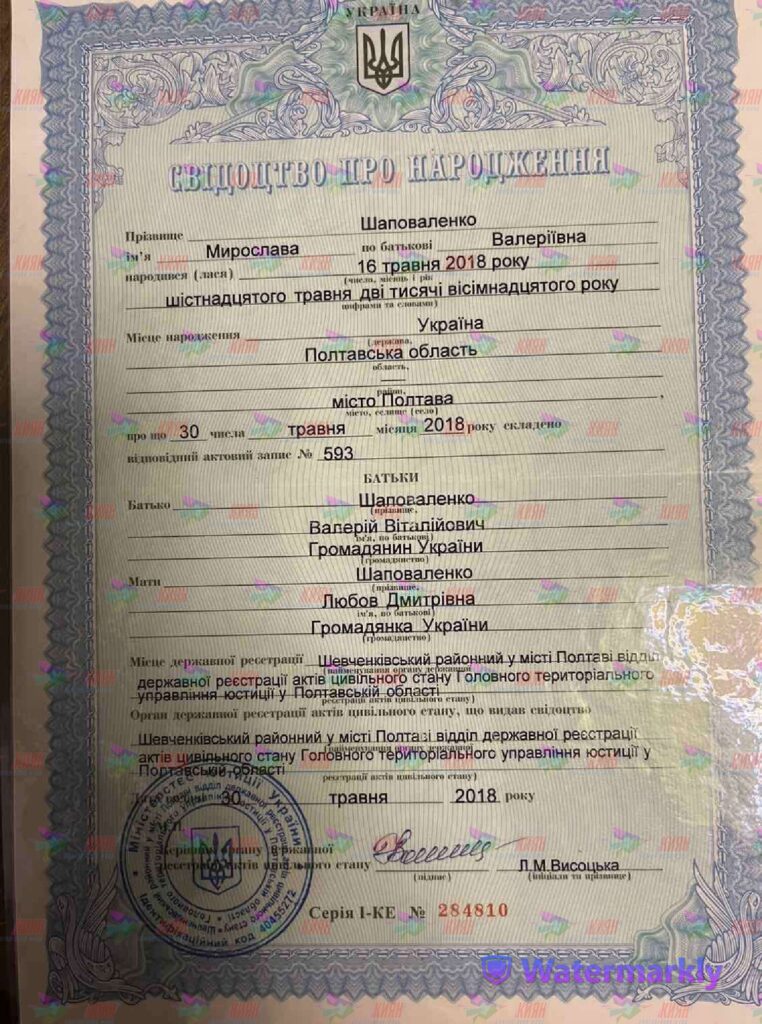 УКРАЇНА
СВІДОЦТВО ПРО НАРОДЖЕННЯ
Прізвище Шаповаленко
ім'я Мирослава по батькові Валеріївна
народився (лася) 16 травня 2018 року
(число, місяць і рік
шістнадцятого травня дві тисячі вісімнадцятого року
цифрами та словами)
Місце народження Україна
(держава,
Полтавська область
область,
район,
місто Полтава,
місто, селище (село)
про що 30 числа травня місяця 2018 року складено
відповідний актовий запис № 593
БАТЬКИ
Батько Шаповаленко
(прізвище,
Валерій Віталійович
ім'я, по батькові)
Громадянин України
(громадянство)
Мати Шаповаленко
(прізвище,
Любов Дмитрівна
ім'я, по батькові)
Громадянка України
(громадянство)
Місце державної реєстрації Шевченківський районний у місті Полтаві відділ
(найменування органу державної
державної реєстрації актів цивільного стану Головного територіального
управління юстиції у Полтавській області
реєстрації актів цивільного стану)
Орган державної реєстрації актів цивільного стану, що видав свідоцтво
Шевченківський районний у місті Полтаві відділ державної реєстрації
(найменування органу державної
актів цивільного стану Головного територіального управління юстиції у
Полтавській області
реєстрації актів цивільного стану)
30 травня 2018 року
Керівник органу державної
реєстрації актів цивільного стану Л.М.Висоцька
(підпис) (ініціали та прізвище)
Міністерство юстиції України
Ідентифікаційний код 40455272
Серія І-КЕ № 284810
Watermarkly
КИЯН